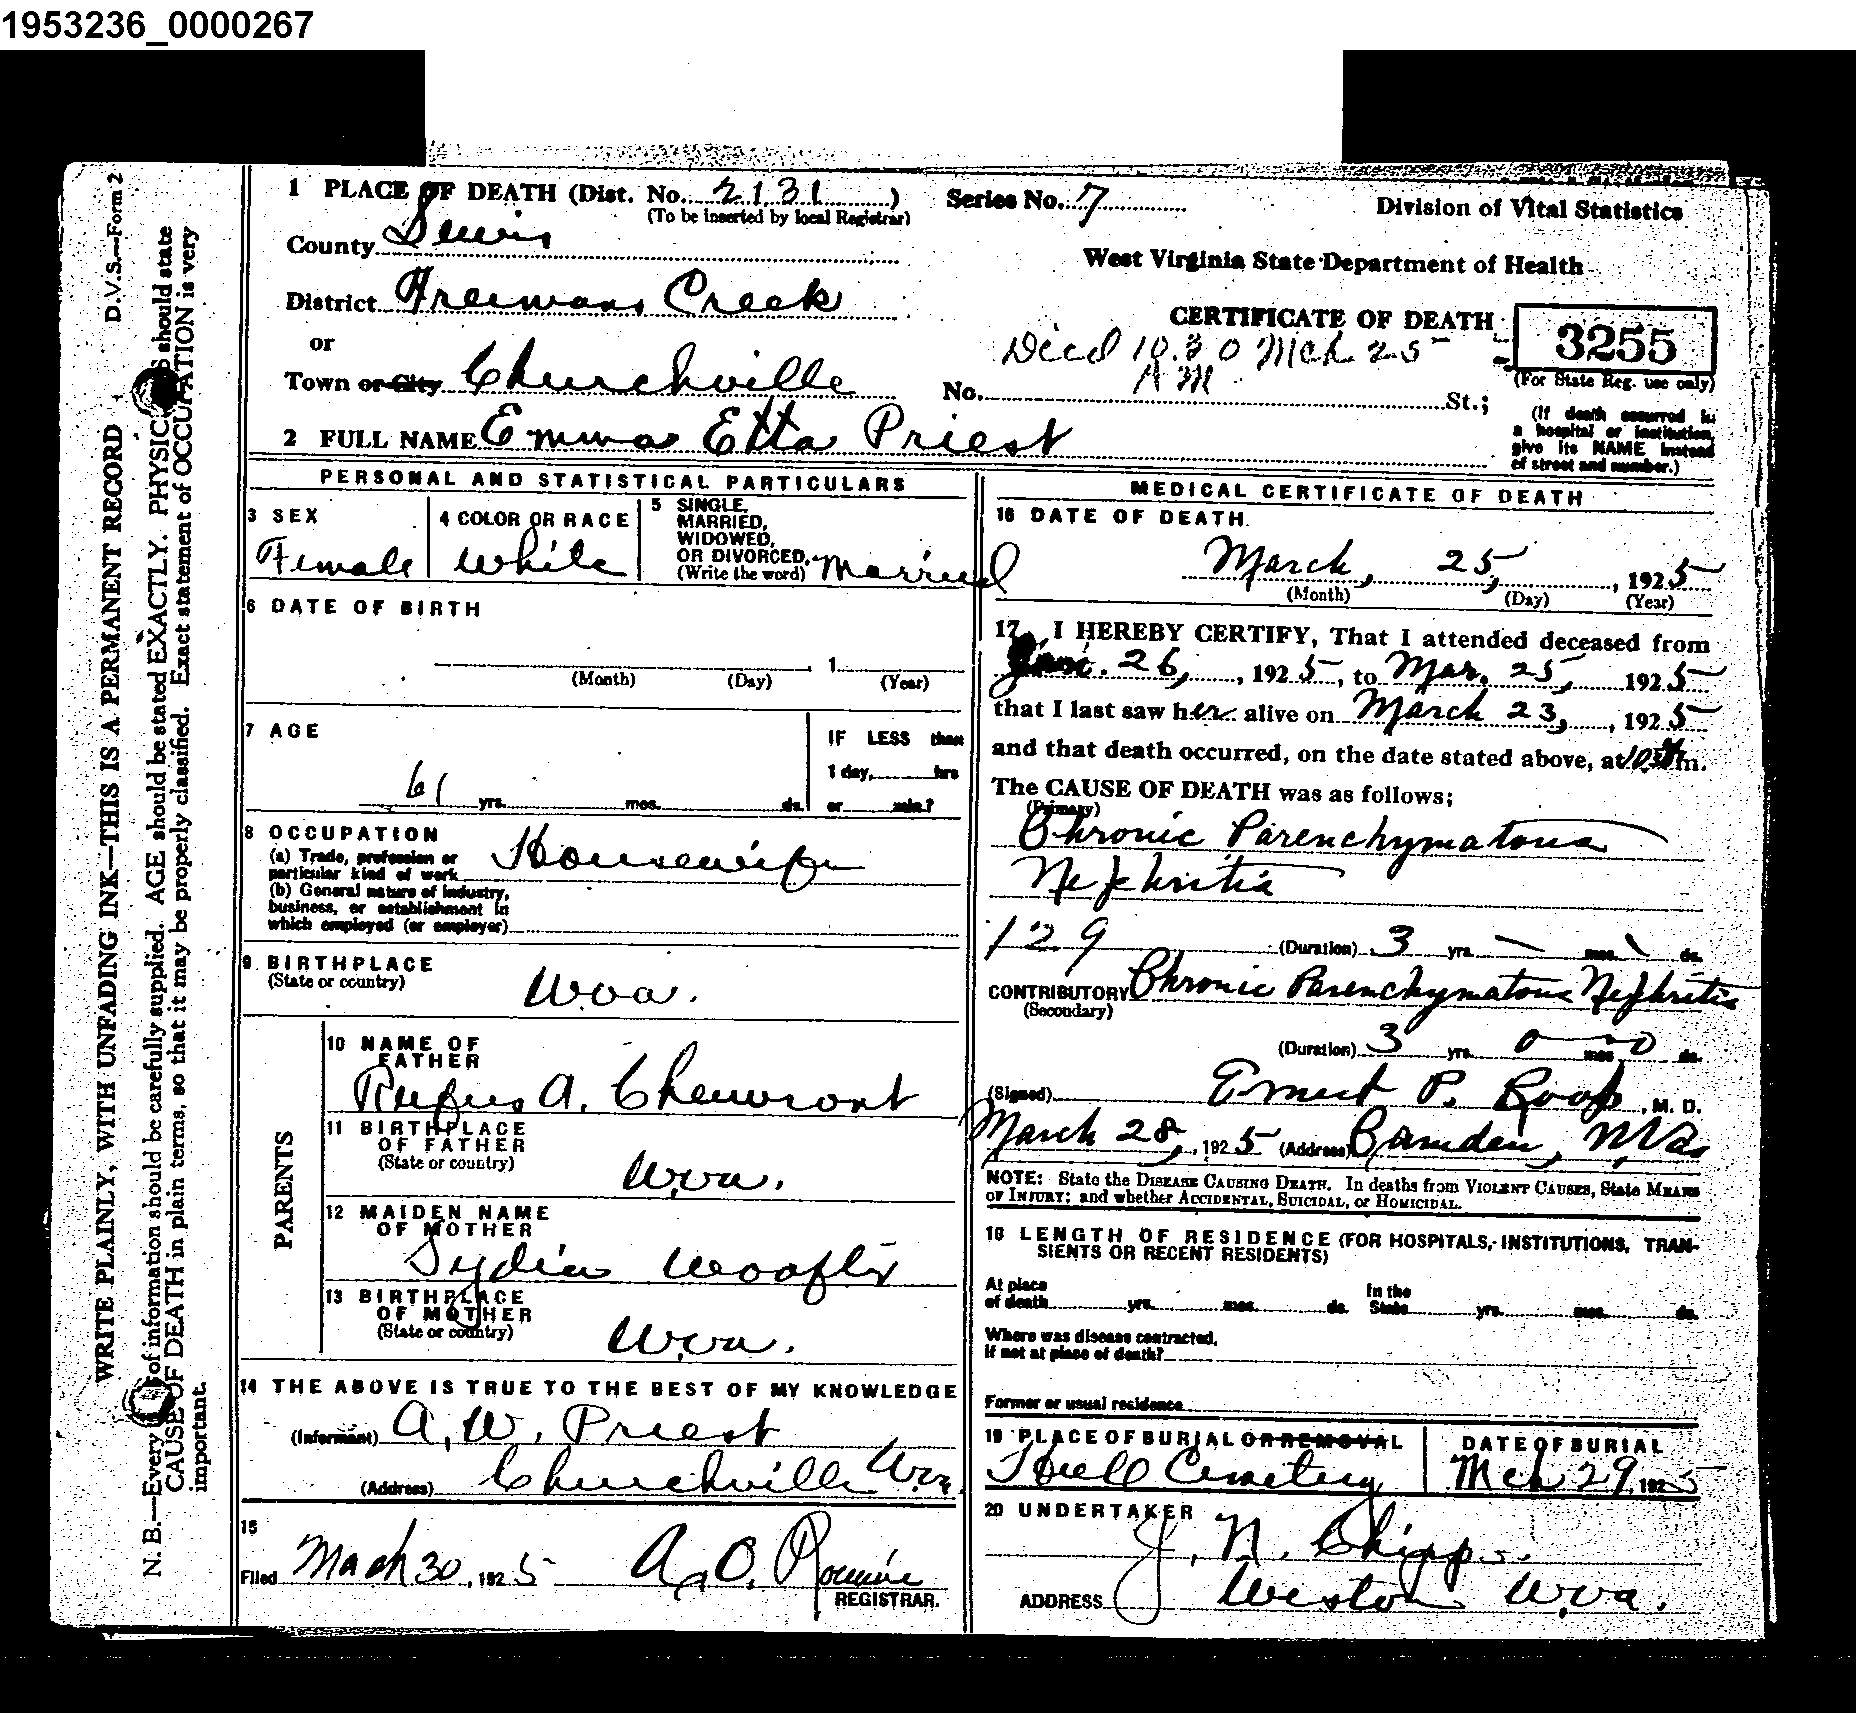 1953236_0000267
D.V.S.—Form 2
WRITE PLAINLY, WITH UNFADING INK—THIS IS A PERMANENT RECORD
N. B.—Every of information should be carefully supplied. AGE should be stated EXACTLY. PHYSIC S should state
CAUSE OF DEATH in plain terms, so that it may be properly classified. Exact statement of OCCUPATION is very
important.
1 PLACE OF DEATH (Dist. No. 2131 )
(To be inserted by local Registrar)
Series No. 7
Division of Vital Statistics
County Lewis
West Virginia State Department of Health
District Freemans Creek
CERTIFICATE OF DEATH
3255
(For State Reg. use only)
or
Died 10.30 Mch 25
A M
Town or City Churchville
No. St.;
(If death occurred in
a hospital or institution,
give its NAME instead
of street and number.)
2 FULL NAME Emma Etta Priest
PERSONAL AND STATISTICAL PARTICULARS
3 SEX
Female
4 COLOR OR RACE
White
5 SINGLE,
MARRIED,
WIDOWED,
OR DIVORCED,
(Write the word) Married
6 DATE OF BIRTH
1
(Month) (Day) (Year)
7 AGE
61 yrs. mos. ds.
IF LESS than
1 day, hrs
or min.?
8 OCCUPATION
(a) Trade, profession or
particular kind of work Housewife
(b) General nature of industry,
business, or establishment in
which employed (or employer)
9 BIRTHPLACE
(State or country)
Wva.
PARENTS
10 NAME OF
FATHER
Rufus A. Cheuvront
11 BIRTHPLACE
OF FATHER
(State or country)
Wva.
12 MAIDEN NAME
OF MOTHER
Lydia Woofter
13 BIRTHPLACE
OF MOTHER
(State or country)
Wva.
14 THE ABOVE IS TRUE TO THE BEST OF MY KNOWLEDGE
(Informant) A. W. Priest
(Address) Churchville Wva
15
Filed March 30, 1925 A. O.
REGISTRAR.
MEDICAL CERTIFICATE OF DEATH
16 DATE OF DEATH
March, 25, , 1925
(Month) (Day) (Year)
17 I HEREBY CERTIFY, That I attended deceased from
Jan. 26, , 1925, to Mar. 25, 1925
that I last saw her alive on March 23, , 1925
and that death occurred, on the date stated above, at m.
The CAUSE OF DEATH was as follows;
(Primary)
Chronic Parenchymatous
Nephritis
129 (Duration) 3 yrs. mos. ds.
CONTRIBUTORY Chronic Parenchymatous Nephritis
(Secondary)
(Duration) 3 yrs. 0 mos. 0 ds.
(Signed) Ernest P. Roop, M. D.
March 28, , 1925 (Address) Camden, W Va
NOTE: State the DISEASE CAUSING DEATH. In deaths from VIOLENT CAUSES, State MEANS
OF INJURY; and whether ACCIDENTAL, SUICIDAL, or HOMICIDAL.
18 LENGTH OF RESIDENCE (FOR HOSPITALS, INSTITUTIONS, TRAN-
SIENTS OR RECENT RESIDENTS)
At place
of death yrs. mos. ds.
In the
State yrs. mos. ds.
Where was disease contracted,
if not at place of death?
Former or usual residence
19 PLACE OF BURIAL OR REMOVAL
Cemetery
DATE OF BURIAL
Mch 29, 1925
20 UNDERTAKER
J. N. Chipps.
ADDRESS Weston Wva.